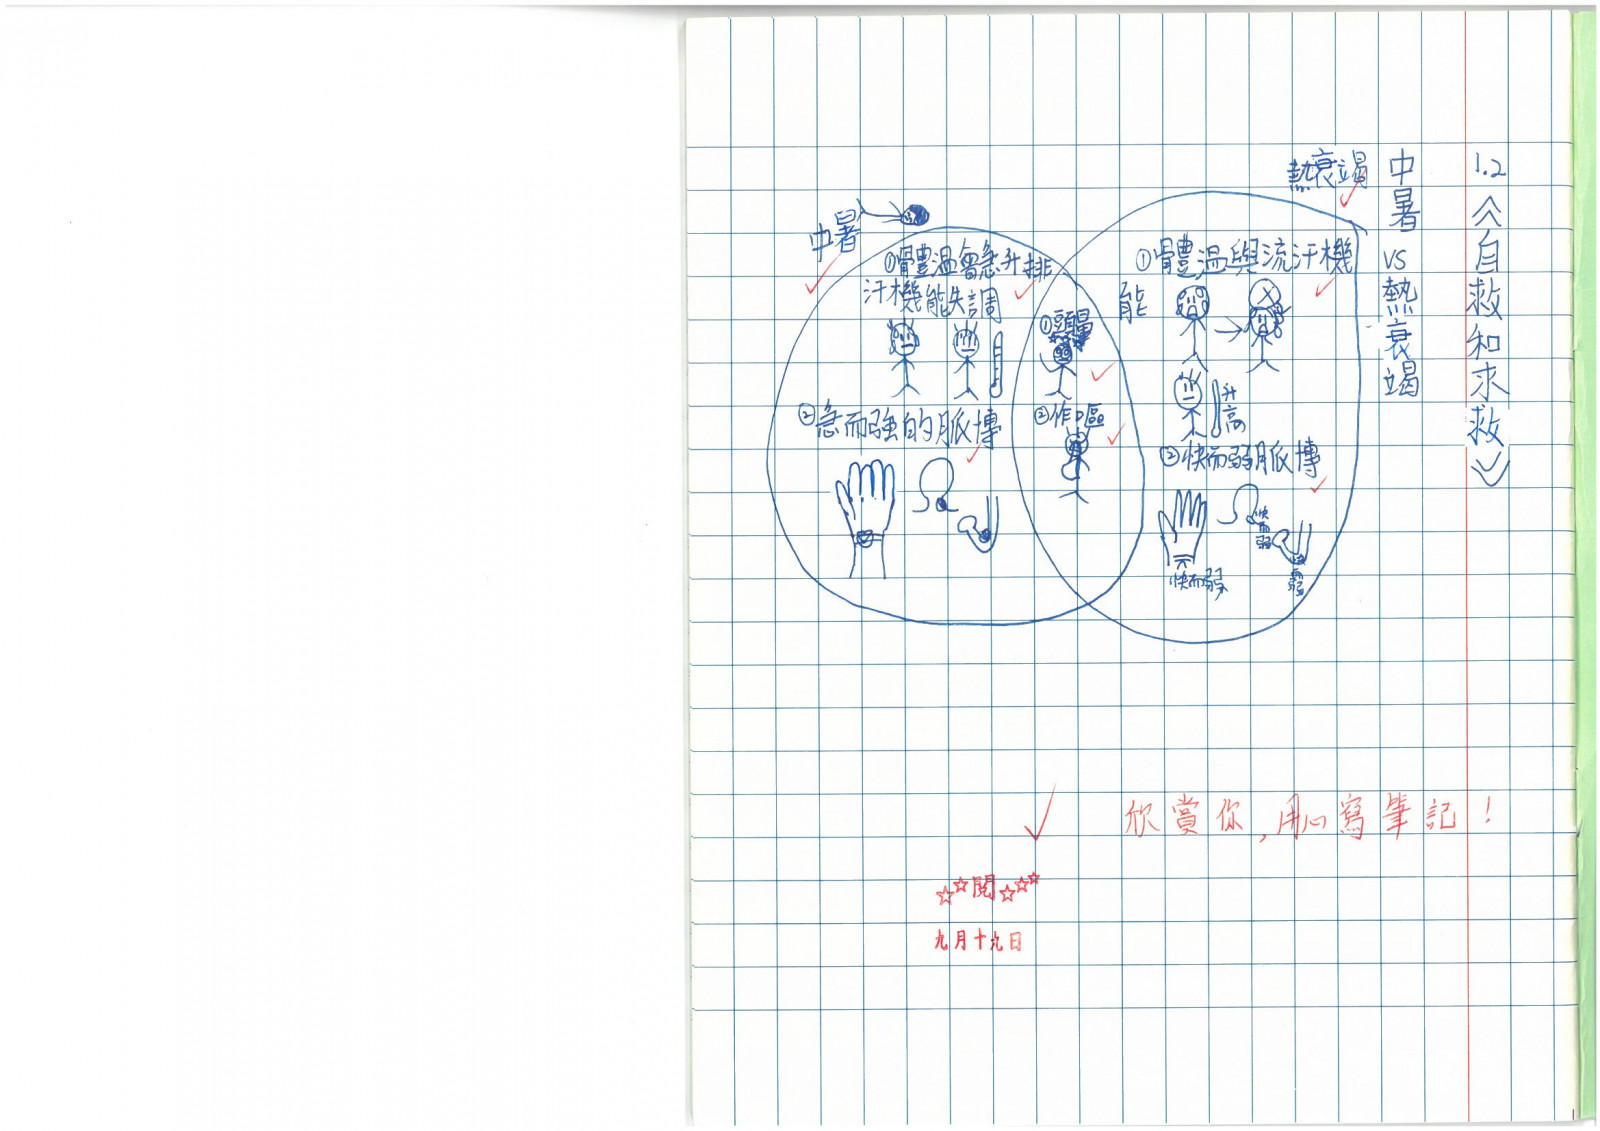 1.2《自救和求救》
中暑 vs 熱衰竭
熱衰竭
①體溫與流汗機
能
升高
②快而弱脈博
快而弱
快而弱
中暑
①體溫會急升排
汗機能失調
②急而強的脈博
①頭暈
②作嘔
欣賞你,用心寫筆記!
☆☆閱☆☆☆
九月十九日